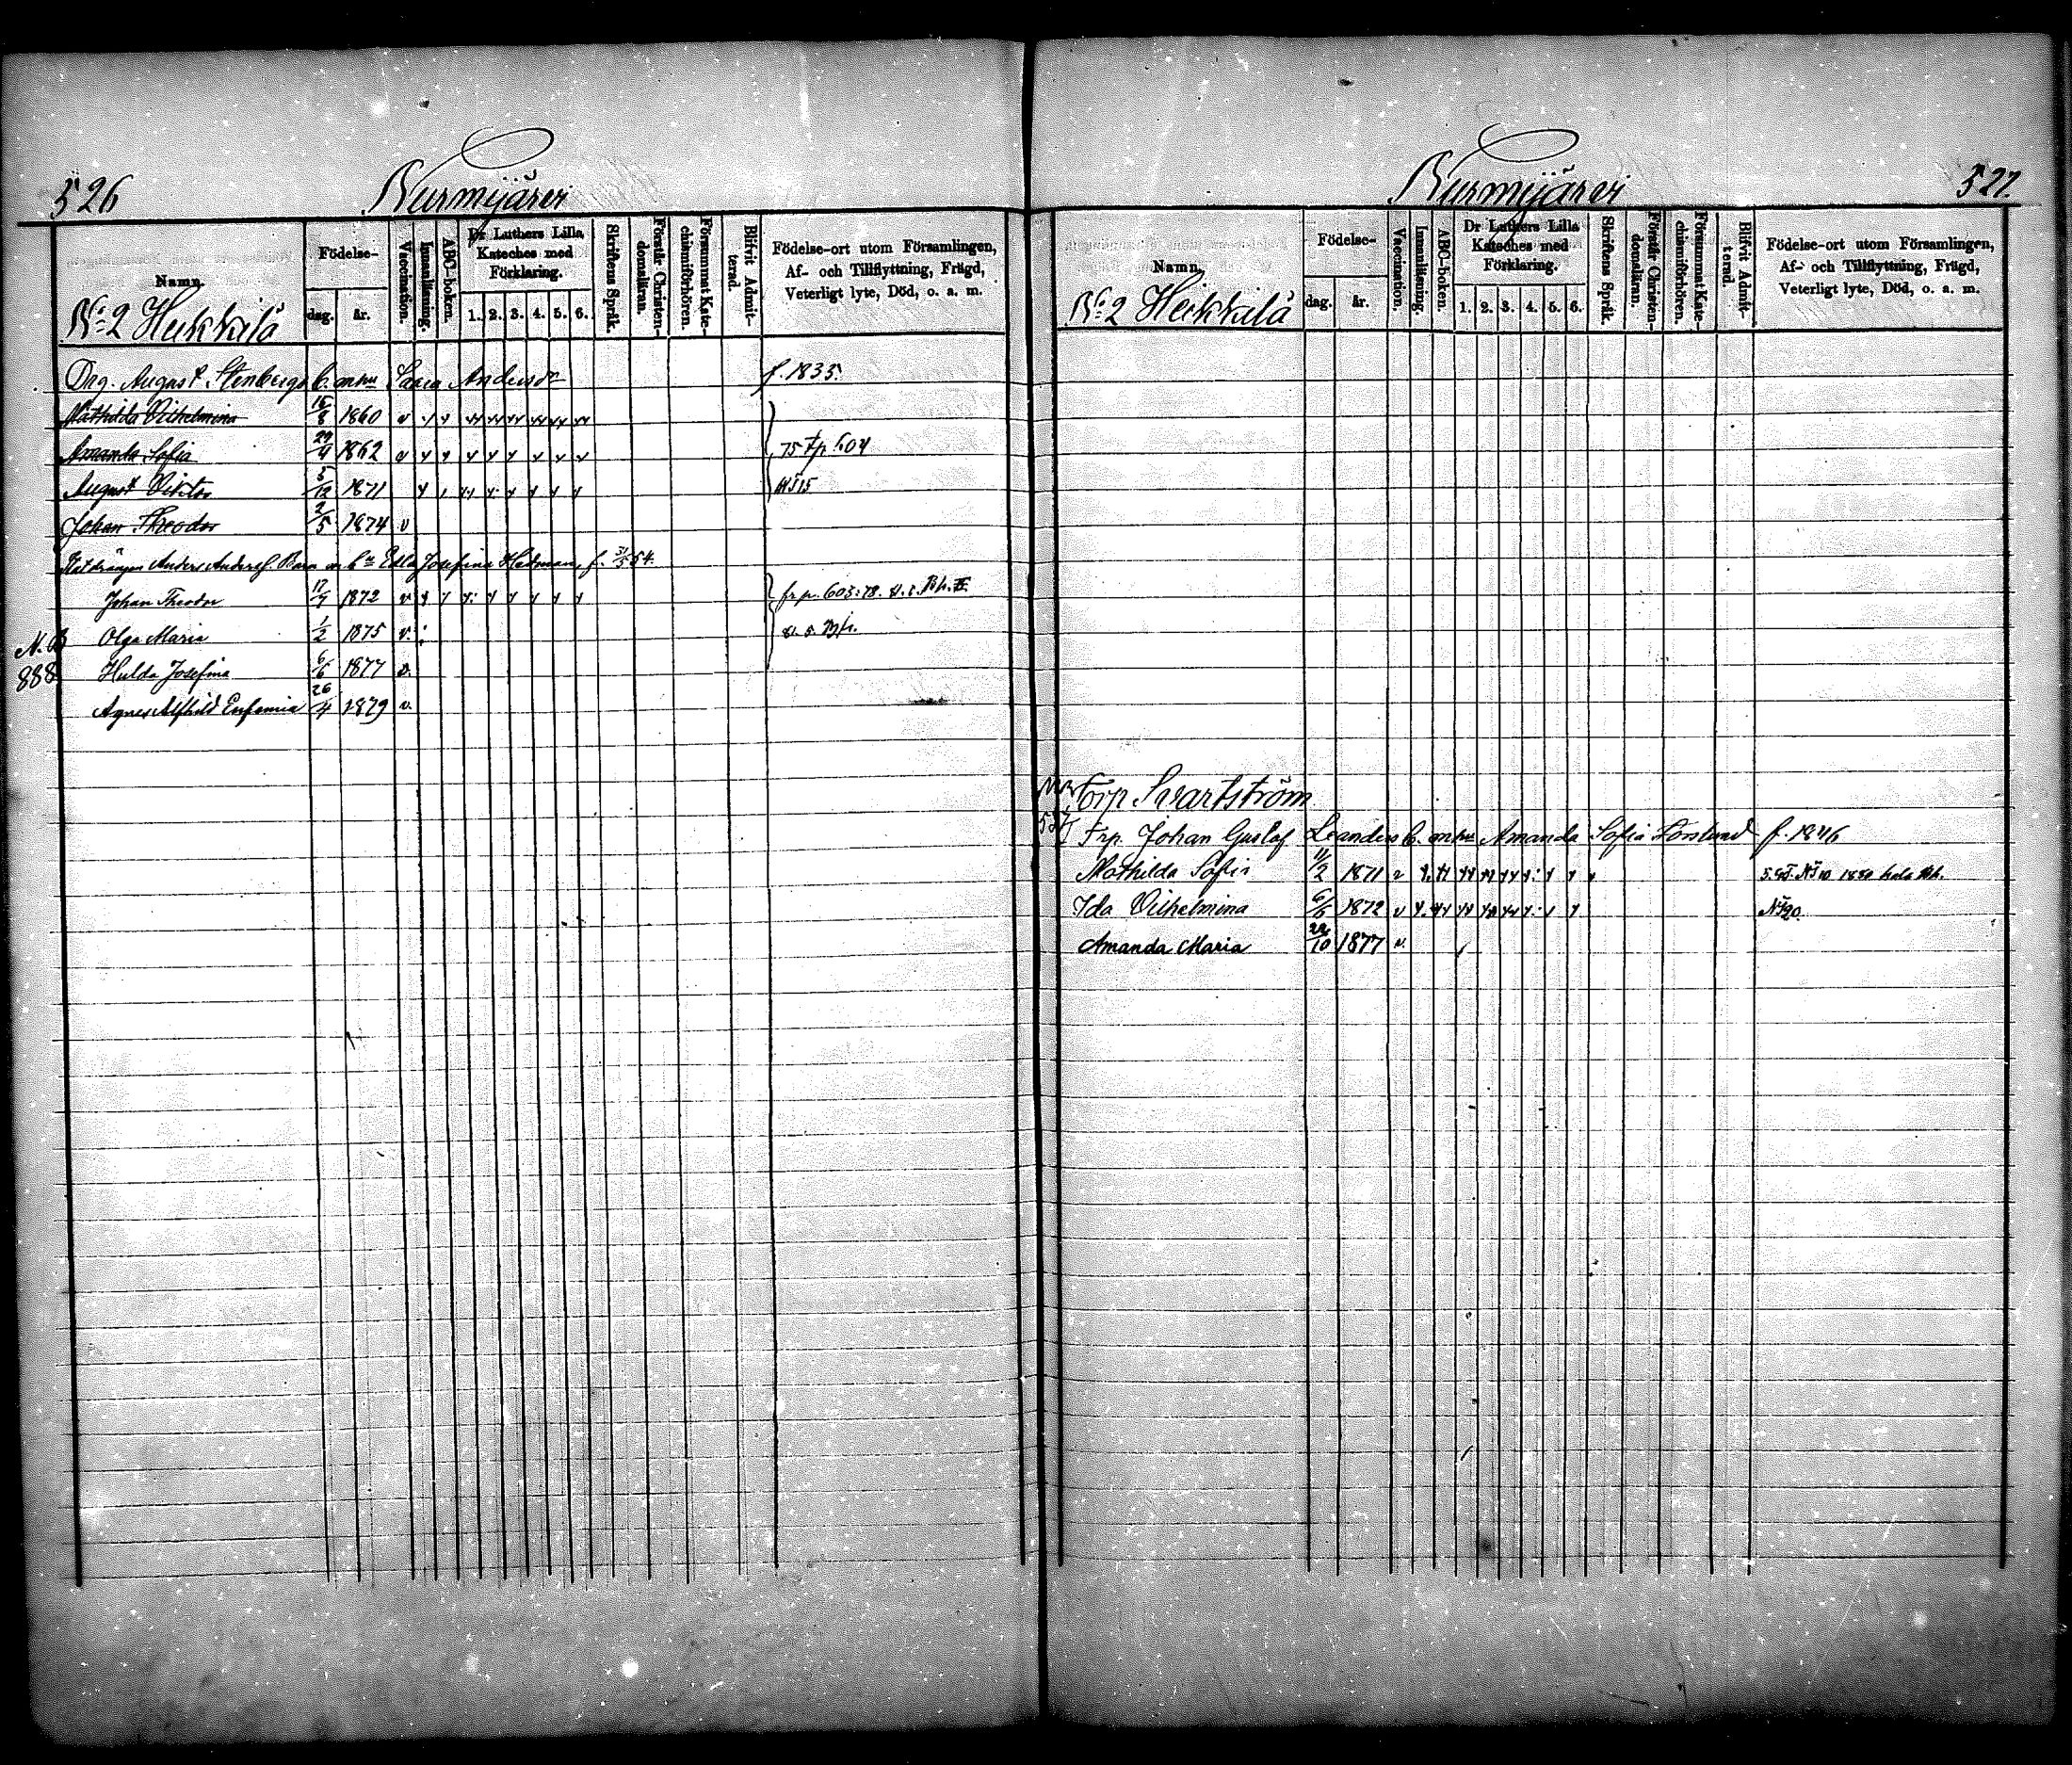 526
Nurmijärvi
Namn.
Födelse-
dag.
år.
Vaccination.
Innanläsning.
ABC-boken.
Dr Luthers Lilla Kateches med Förklaring.
1. 2. 3. 4. 5. 6.
Skriftens Språk.
Förstår Christendomsläran.
Försummat Katechismiförhören.
Blifvit Admitterad.
Födelse-ort utom Församlingen, Af- och Tillflyttning, Frägd, Veterligt lyte, Död, o. a. m.
No 2 Heikkilä
Drg. August Stenbergs b. m hu Saara Andersdr f. 1835.
Mathilda Vilhelmina 16/8 1860
Amanda Sofia 29/4 1862 75 fr p. 604
August Viktor 5/12 1871 NT 15
Johan Theodor 2/5 1874 v
Anders Anderss. Barn m hn Edla Josefina Hedman, f. 31/3 54.
Johan Theodor 17/9 1872 v fr p. 603: 78.
N.B. Olga Maria 1/2 1875 v.
888 Hulda Josefina 6/6 1877 v.
Agnes Alfhild Eufemia 26/4 1879 v.
Nurmijärvi
527.
Namn.
Födelse-
dag.
år.
Vaccination.
Innanläsning.
ABC-boken.
Dr Luthers Lilla Kateches med Förklaring.
1. 2. 3. 4. 5. 6.
Skriftens Språk.
Förstår Christendomsläran.
Försummat Katechismiförhören.
Blifvit Admitterad.
Födelse-ort utom Församlingen, Af- och Tillflyttning, Frägd, Veterligt lyte, Död, o. a. m.
No 2 Heikkilä
Torp Svartström
Trp. Johan Gustaf Leanders b. m hu Amanda Sofia Forslund f. 1846
Mathilda Sofia 11/2 1871 v
Ida Vilhelmina 6/5 1872 v NT 20.
Amanda Maria 22/10 1877 v.